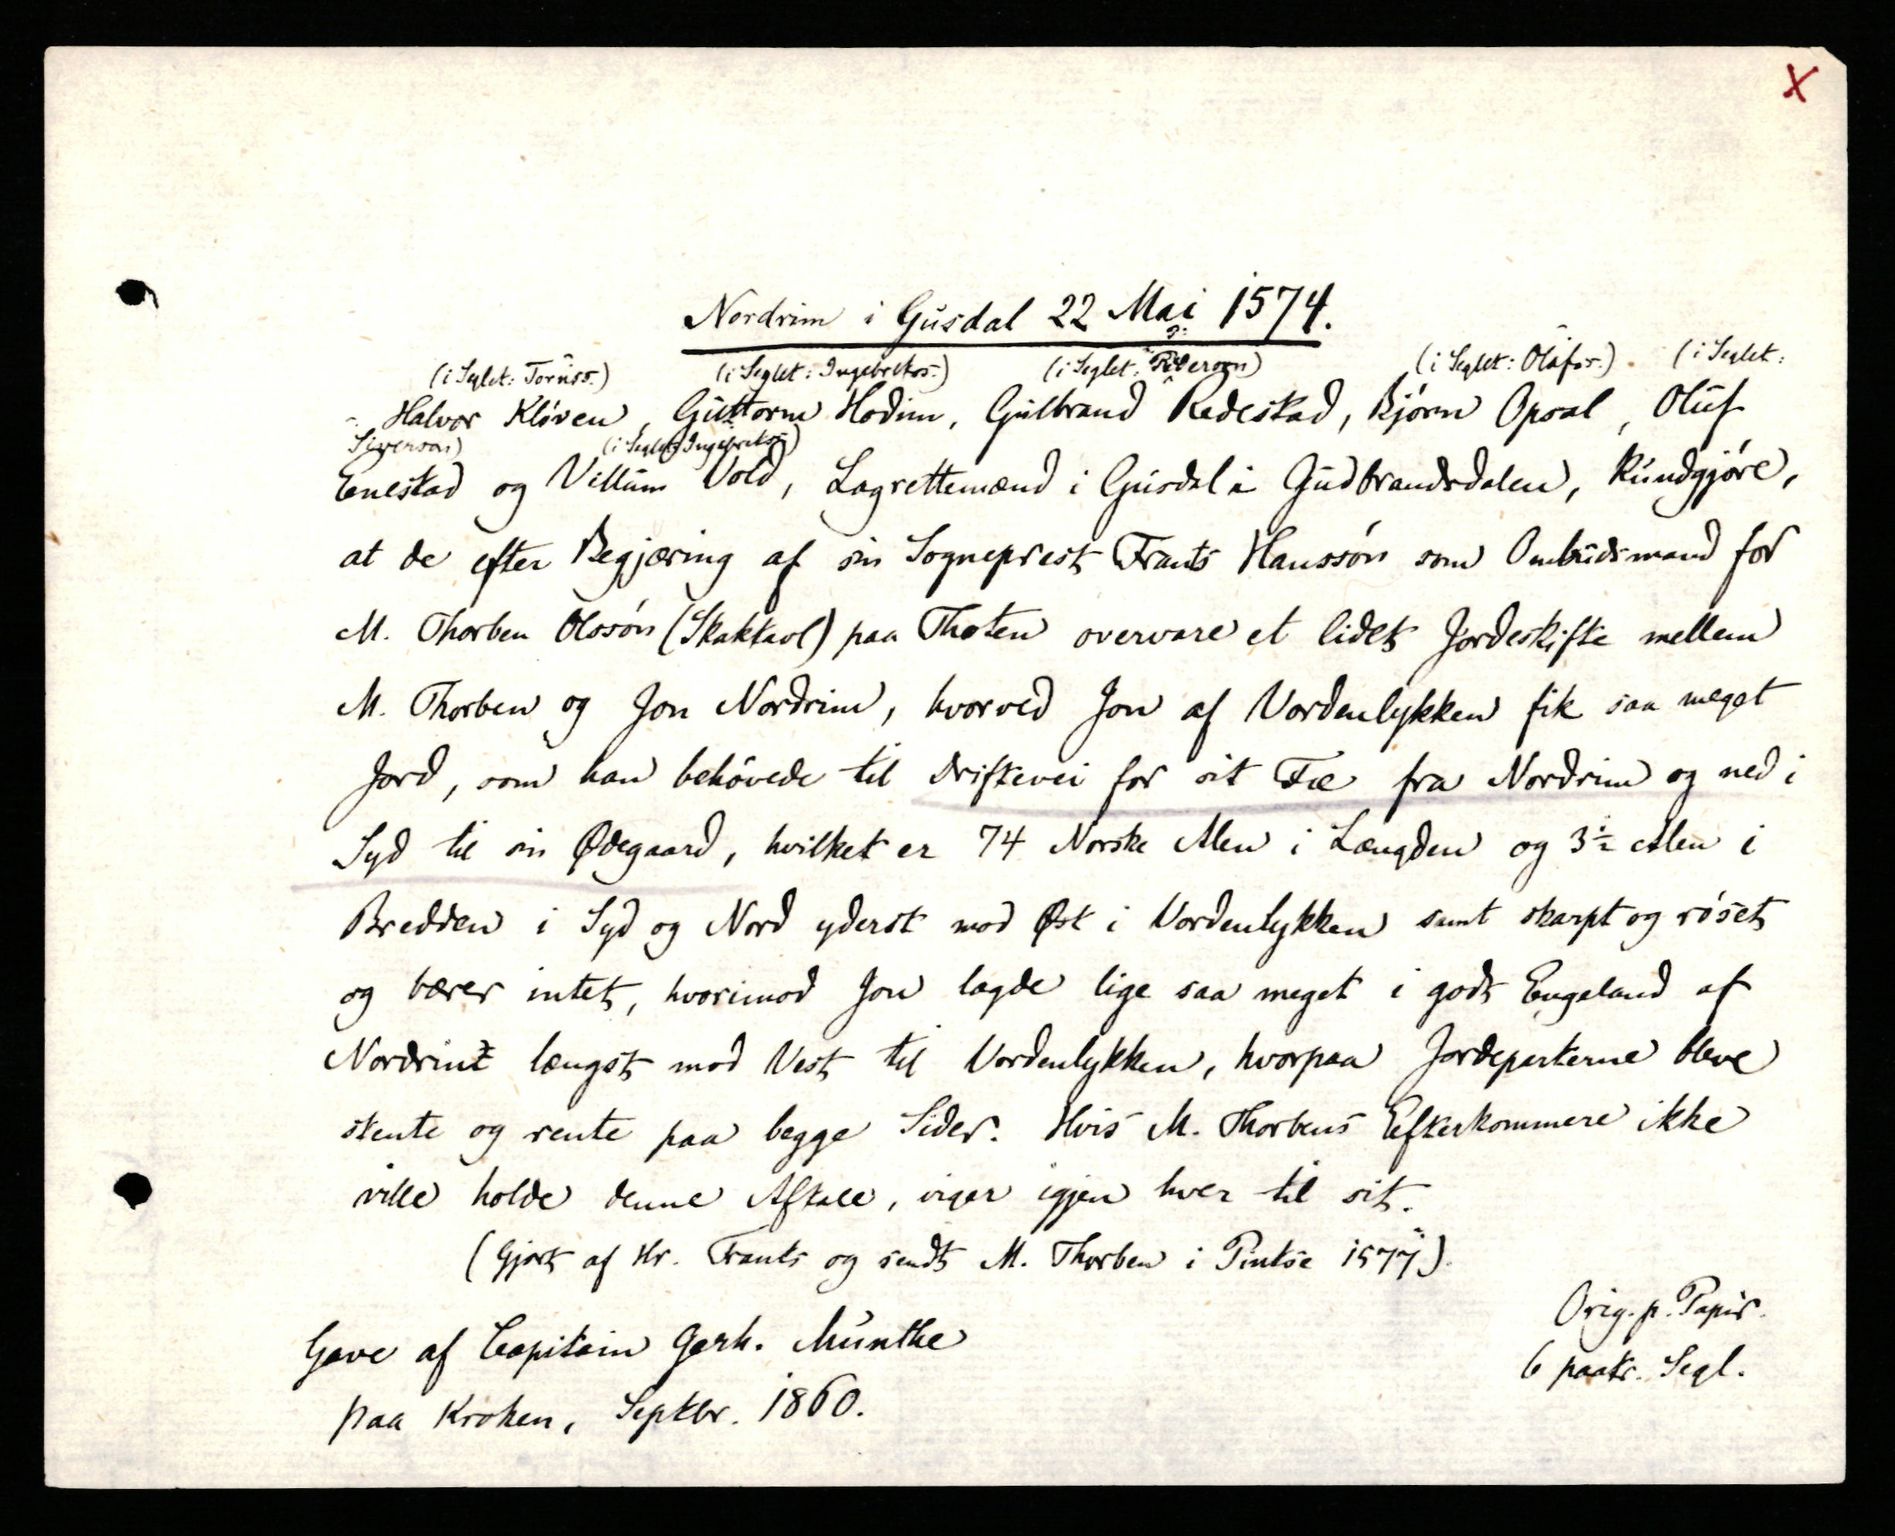 X
Nordrim i Gusdal 22 Mai 1574.
(i Seglet: Torüss.) (i Seglet: Ingebrektss.) (i Seglet: Pederson) (i Seglet: Olafss.) (i Seglet:
Halvor Klöven, Guttorm Hodim, Gulbrand Redestad, Bjørn Opsal, Oluf
Siverson) (i Seglet: Ingebrektss)
Enestad og Villum Vold, Lagrettemænd i Gusdal i Gudbrandsdalen, kundgjøre,
at de efter Begjæring af sin Sogneprest Frants Hanssøn som Ombudsmand for
M. Thorben Olssøn (Skaktavl) paa Thoten overvare et lidet Jordeskifte mellem
M. Thorben og Jon Nordrim, hvorved Jon af Vordenlykken fik saa meget
Jord, som han behøvede til Driftevei for sit Fæ fra Nordrim og ned i
Syd til sin Ødegaard, hvilket er 74 Norske Alen i Længden og 3½ Alen i
Bredden i Syd og Nord yderst mod Øst i Vordenlykken samt skarpt og röset
og bærer intet, hvorimod Jon lagde lige saa meget i godt Engeland af
Nordrim længst mod Vest til Vordenlykken, hvorpaa Jordeparterne bleve
stente og rente paa begge Sider. Hvis M. Thorbens Efterkommere ikke
ville holde denne Aftale, viger igjen hver til sit.
(Gjort af Hr. Frants og sendt M. Thorben i Pintse 1577).
Orig. p. Papir.
6 paatr. Segl.
Gave af Capitain Gerh. Munthe
paa Kroken, Septbr. 1860.